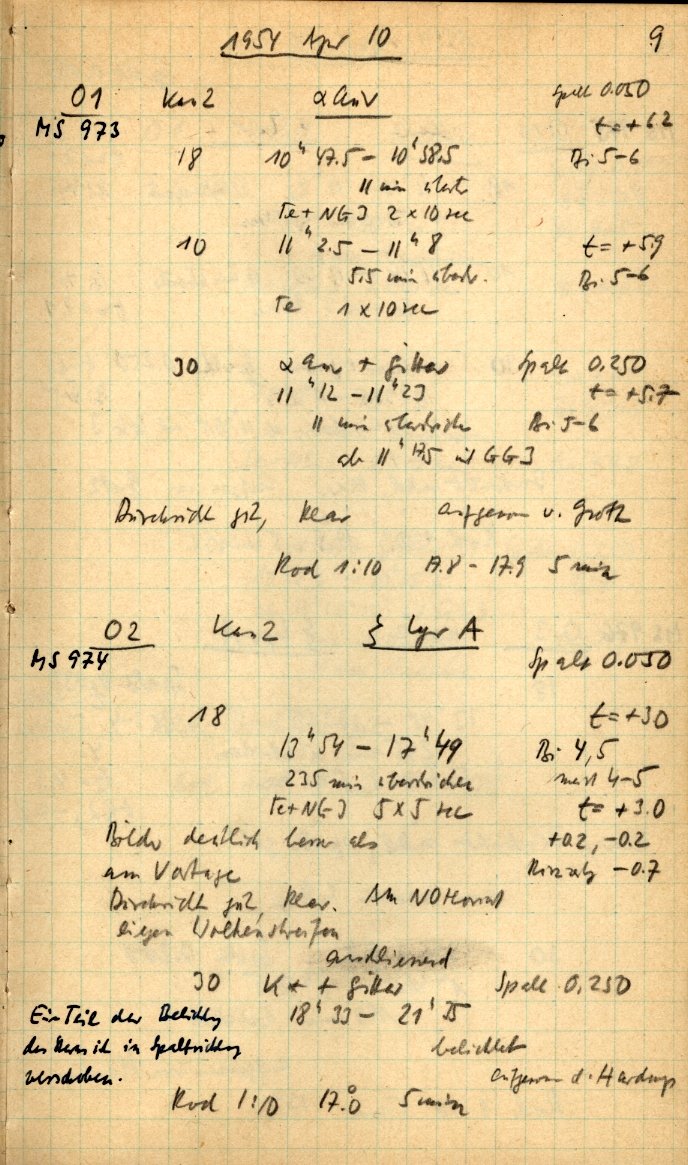 1954 Apr 10 9
O1 Kam2 α Aur Spalt 0.050
MS 973 t = +6.2
18 10ʰ 47.5 – 10ʰ 58.5 Bi 5–6
11 min überstr
Te + NG3 2 x 10 sec
10 11ʰ 2.5 – 11ʰ 8 t = +5.9
5.5 min überstr. Bi. 5–6
Te 1 x 10 sec
30 α Aur + Gitter Spalt 0.250
11ʰ 12 – 11ʰ 23 t = +5.7
11 min überstrichen Bi 5–6
ab 11ʰ 17.5 mit GG3
Durchsicht gut, klar aufgenom v. Groth
Rod 1:10 17.8 – 17.9 5 min
O2 Kam2 ξ Lyr A
MS 974 Spalt 0.050
18 t = +30
13ʰ 54 – 17ʰ 49 Bi 4,5
235 min überstrichen meist 4–5
Te + NG3 5 x 5 sec t = +3.0
Bilder deutlich besser als +0.2, –0.2
am Vortage –0.7
Durchsicht gut klar. Am NOHorizont
liegen Wolkenstreifen
anschliessend
30 K* + Gitter Spalt 0,250
Ein Teil der Belichtg 18ʰ 33 – 21ʰ 35
in Spaltrichtung belichtet
verschoben. aufgenom d.
Rod 1:10 17.0° 5 min